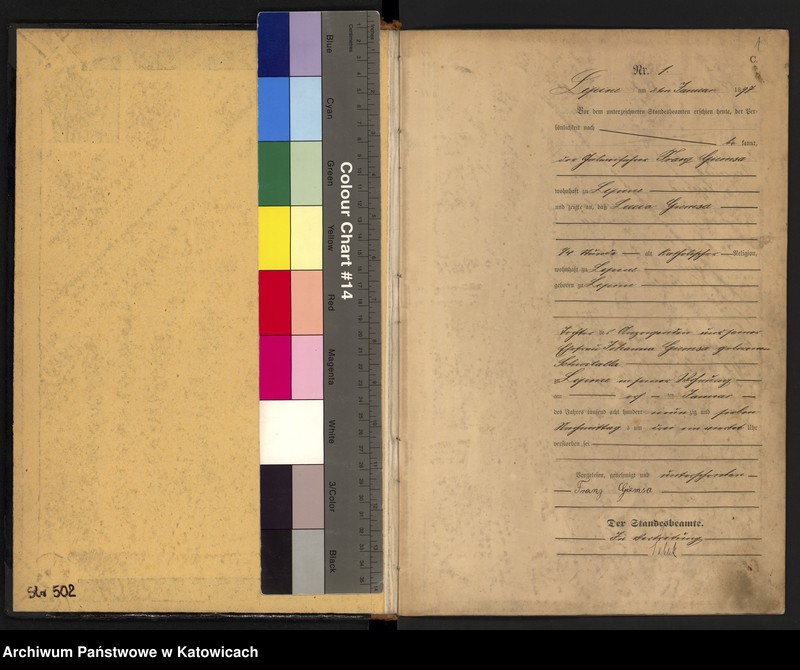 Str 502
Colour Chart #14
Centimetres
Blue
Cyan
Green
Yellow
Red
Magenta
White
3/Color
Black
1
C.
Nr. 1
Lipine am 2ten Januar 1897
Vor dem unterzeichneten Standesbeamten erschien heute, der Per-
sönlichkeit nach
be kannt,
der Franz Giemsa
wohnhaft zu Lipine
und zeigte an, daß Giemsa
Katholischer Religion,
wohnhaft zu Lipine
geboren zu Lipine
Tochter des Anzeigenden und seiner
Ehefrau Johanna Giemsa geborenen
zu Lipine in seiner Wohnung
am Januar
des Jahres tausend acht hundert neun zig und sieben
Nachmittags um Uhr
verstorben sei
Vorgelesen, genehmigt und unterschrieben
Franz Giemsa
Der Standesbeamte.
In Vertretung
Archiwum Państwowe w Katowicach